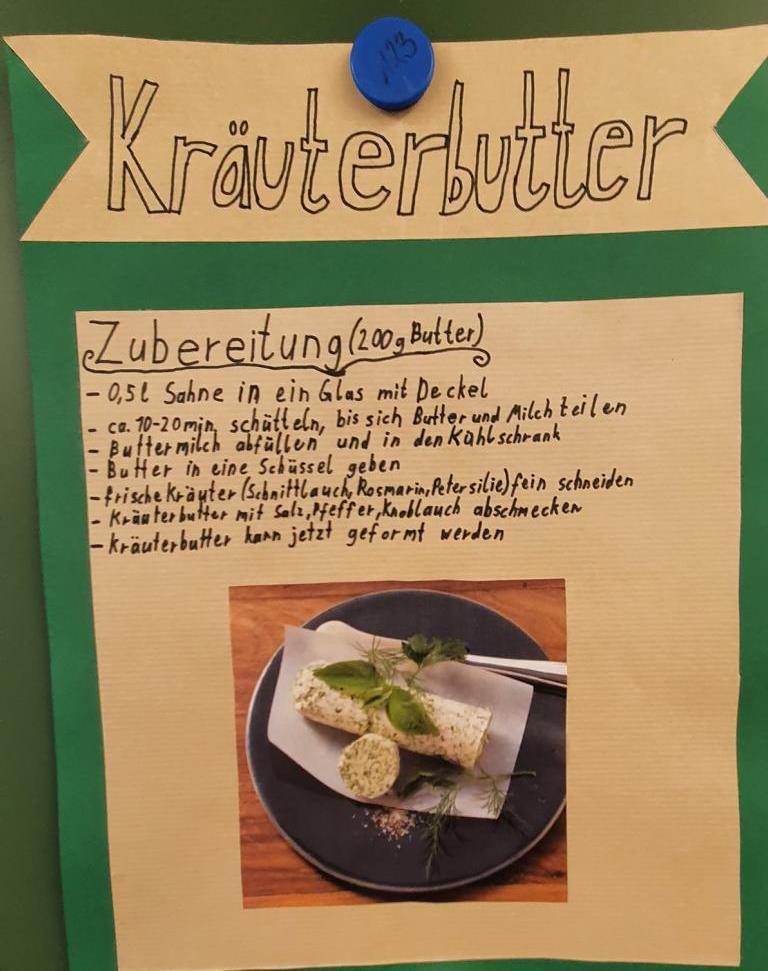 123
Kräuterbutter
Zubereitung (200g Butter)
- 0,5l Sahne in ein Glas mit Deckel
- ca. 10-20min schütteln, bis sich Butter und Milch teilen
- Buttermilch abfüllen und in den Kühlschrank
- Butter in eine Schüssel geben
- frische Kräuter (Schnittlauch, Rosmarin, Petersilie) fein schneiden
- Kräuterbutter mit Salz, Pfeffer, Knoblauch abschmecken
- Kräuterbutter kann jetzt geformt werden